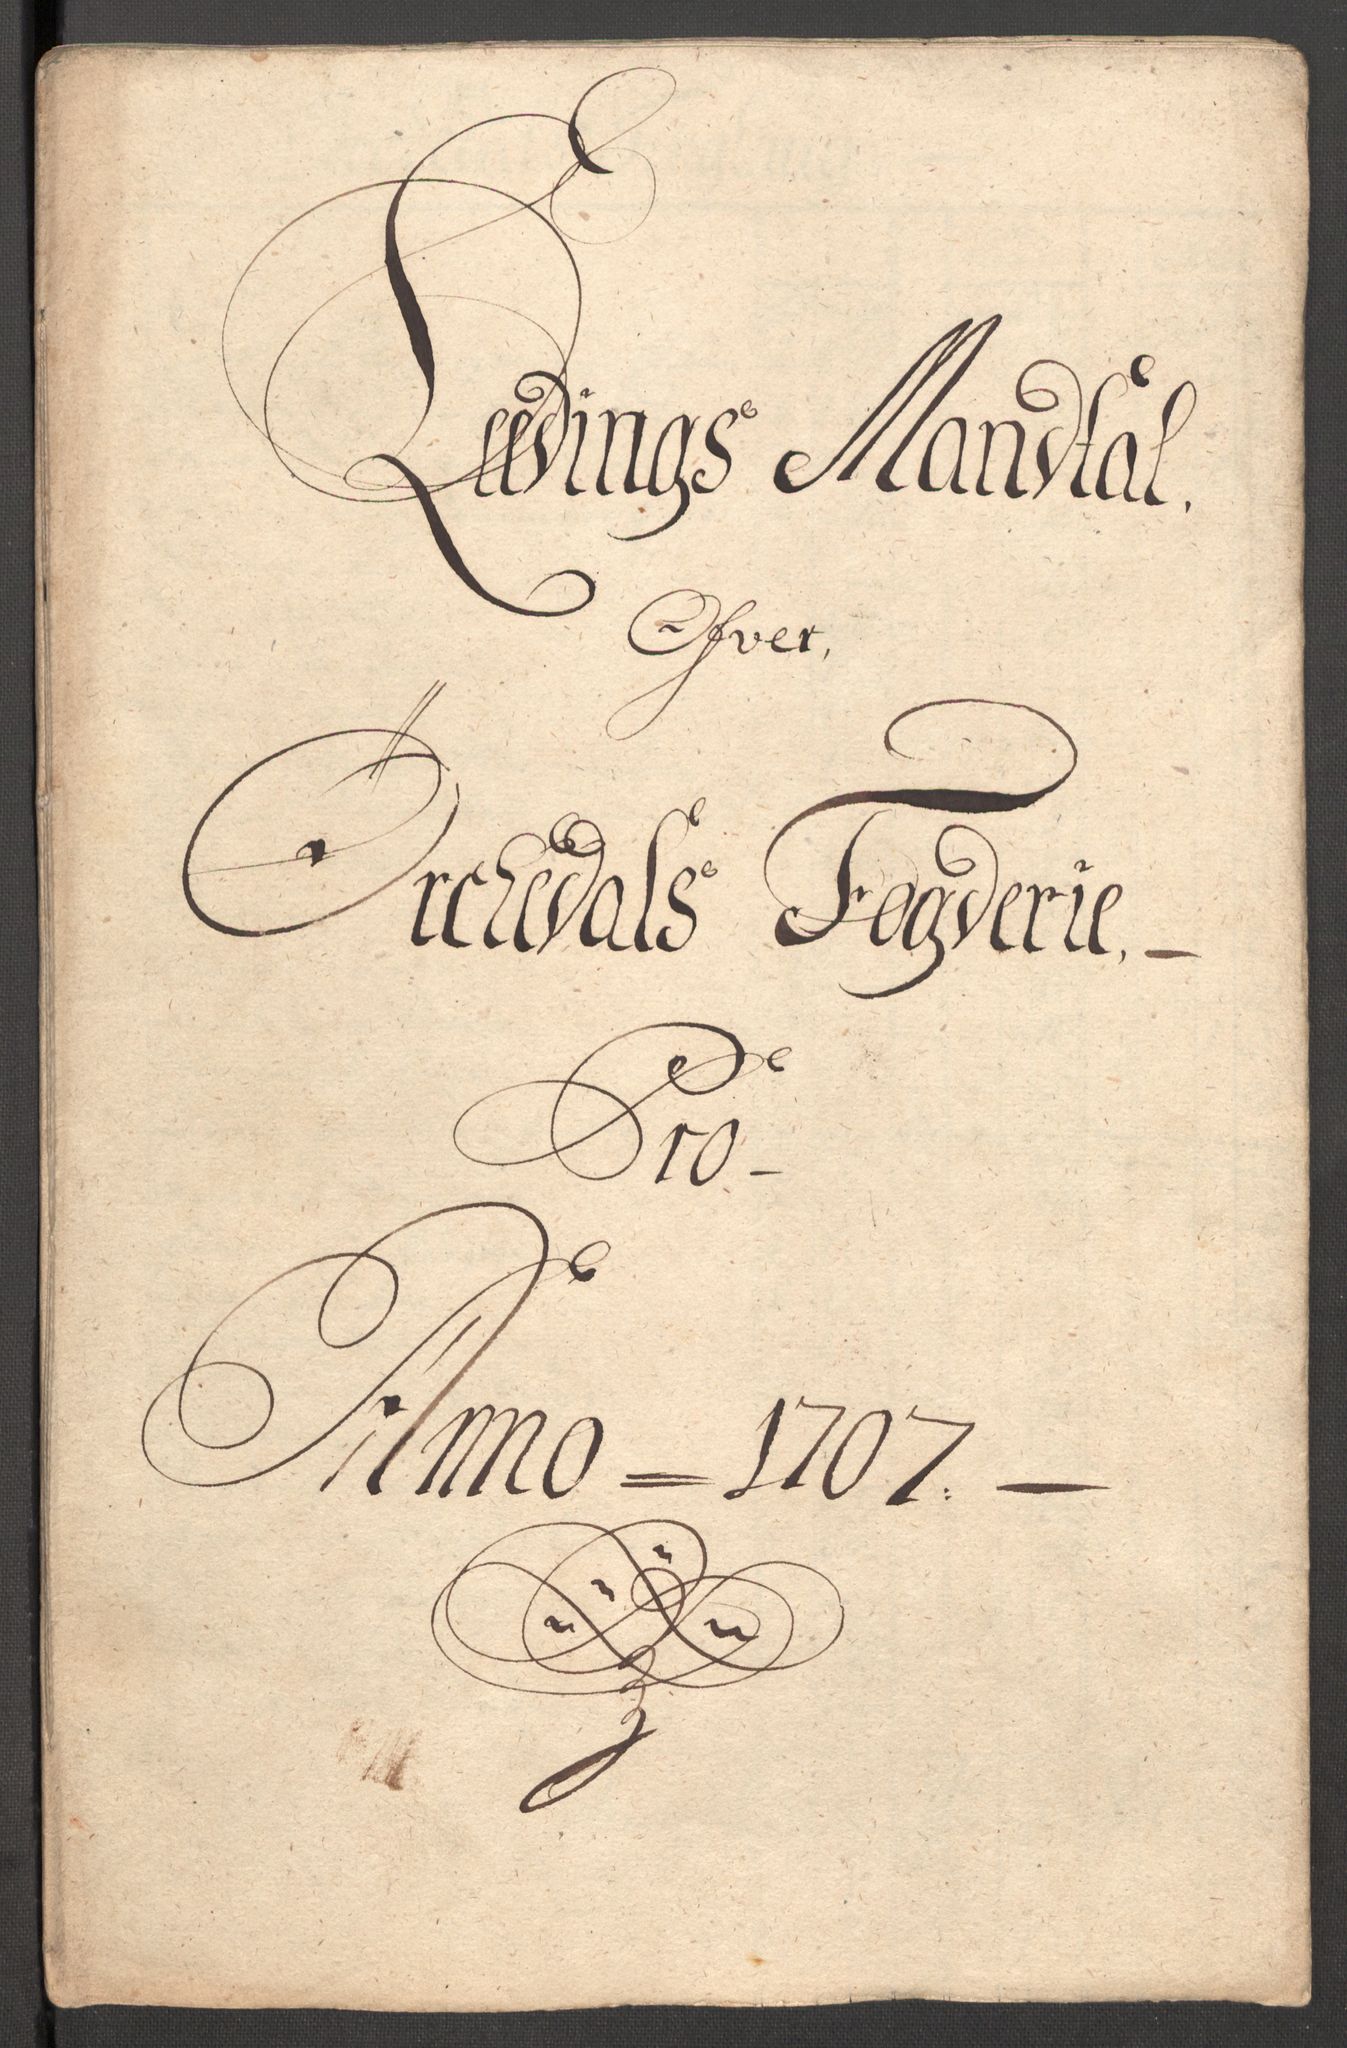 Leedings Mandtal.
Ofver,
Orchedals Fogderie. –
Pro –
Anno = 1707. –